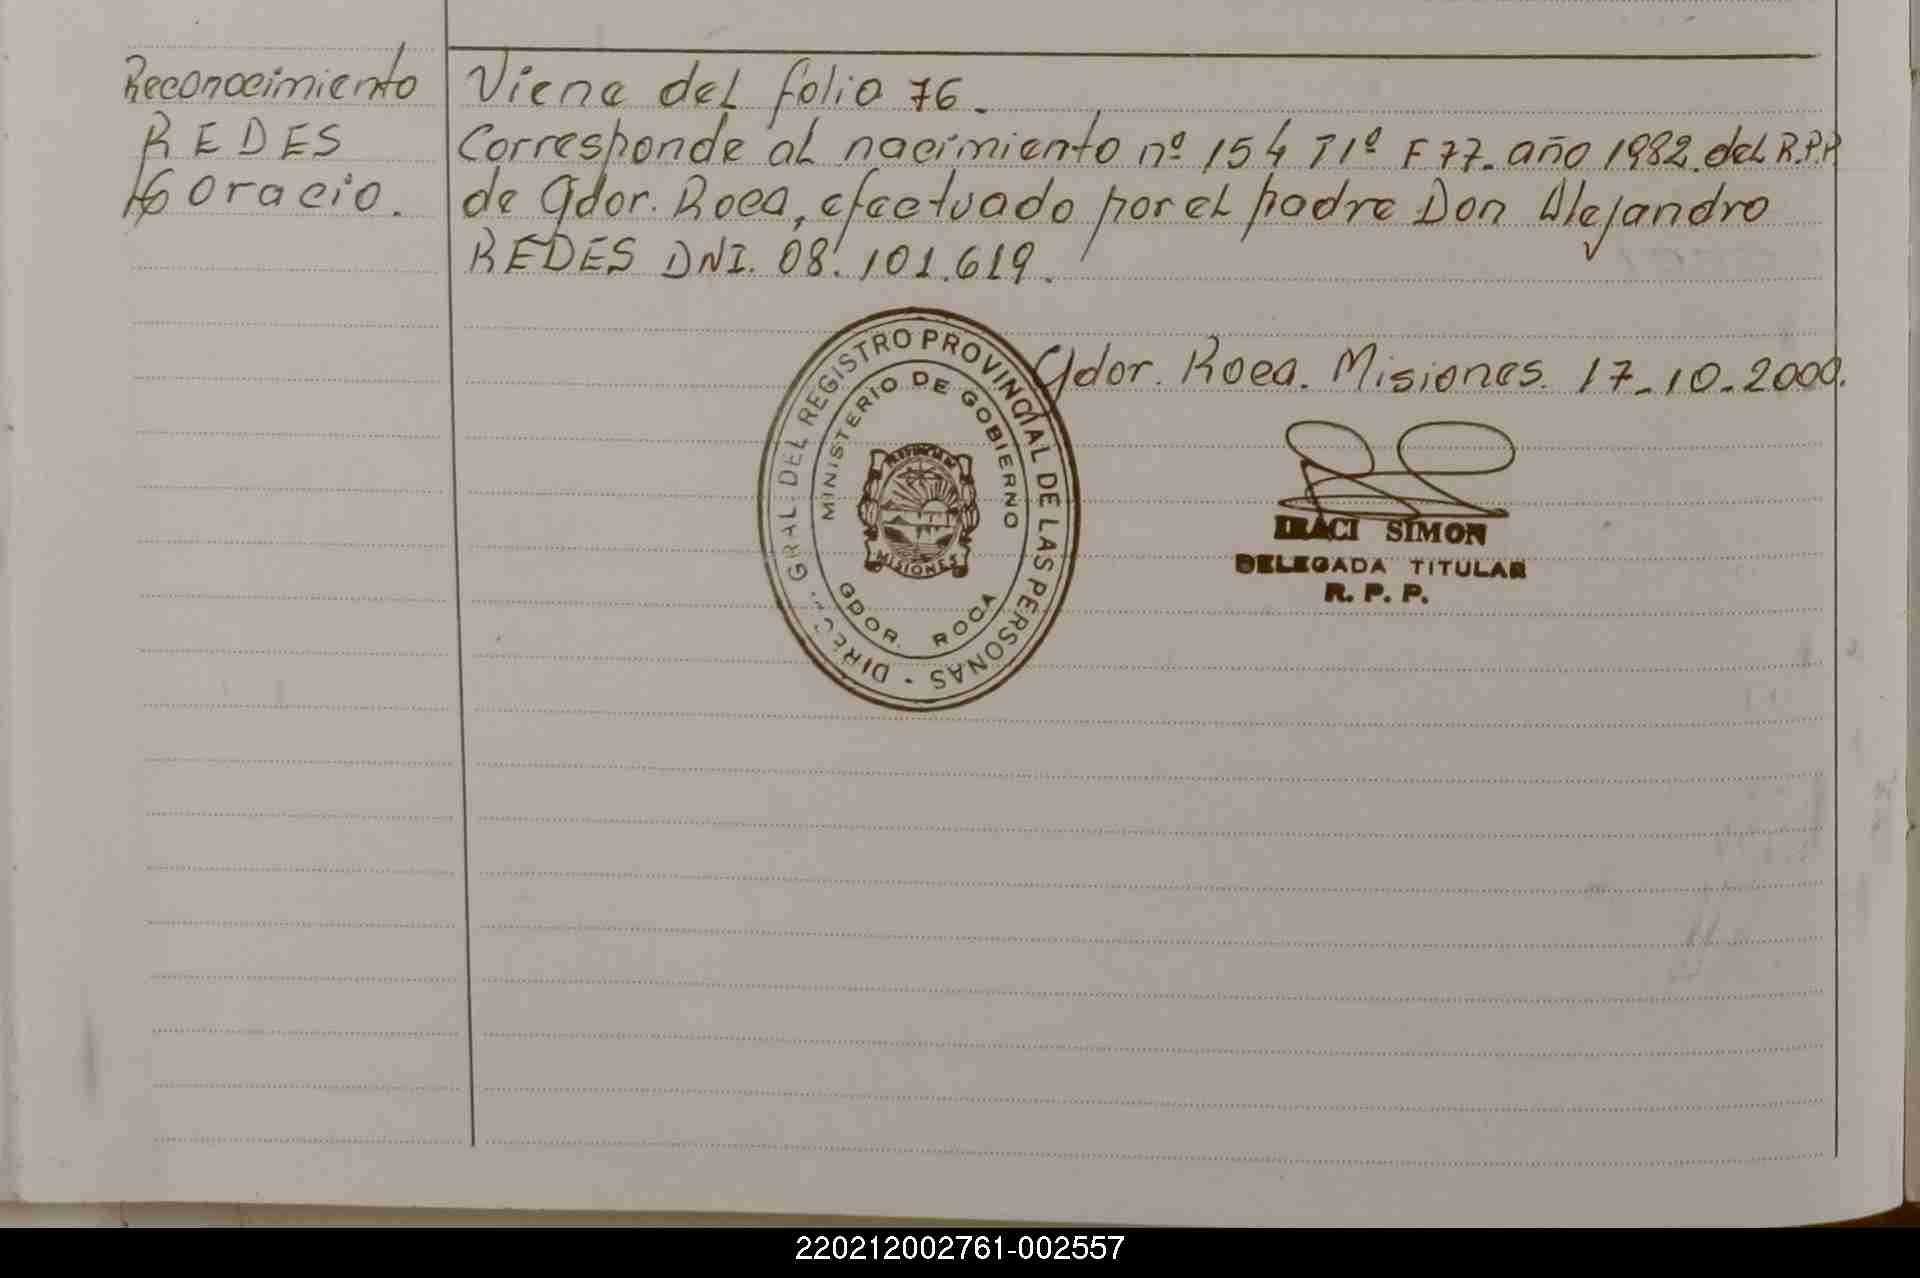 Reconocimiento
REDES
Horacio.
Viene del folio 76.
Corresponde al nacimiento nº 154 T1º F77. año 1982. del R.P.P
de Gdor. Roca, efectuado por el padre Don Alejandro
REDES DNI. 08.101.619.
Gdor. Roca. Misiones. 17-10-2000.
DIREC. GRAL. DEL REGISTRO PROVINCIAL DE LAS PERSONAS -
MINISTERIO DE GOBIERNO
MISIONES
GDOR. ROCA
IRACI SIMON
DELEGADA TITULAR
R. P. P.
220212002761-002557